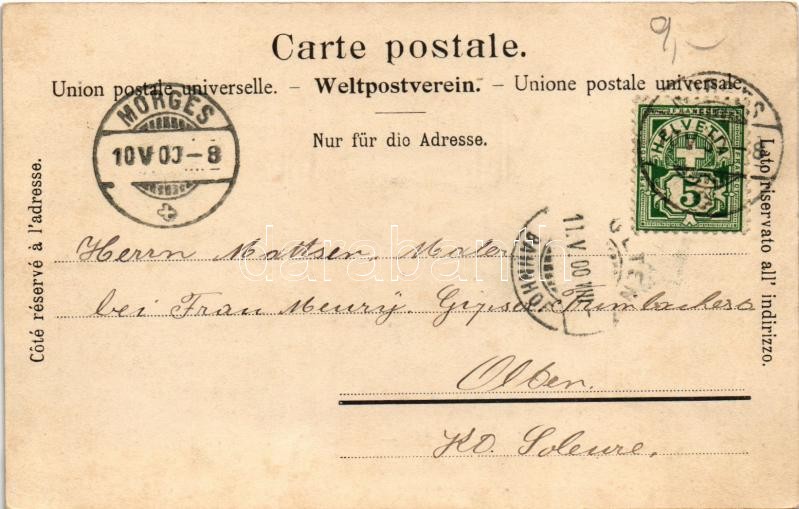 Carte postale.
9,–
Union postale universelle. – Weltpostverein. – Unione postale universale
Nur für dio Adresse.
MORGES
10 V 00 – 8
HELVETIA
5
11. V. 00. VIII
OLTEN
BAHNHOF
Côté réservé à l'adresse.
Lato riservato all' indirizzo.
darabanth
Herrn Mattsen, Maler
bei Frau Meury,
Olten.
Kt. Soleure.